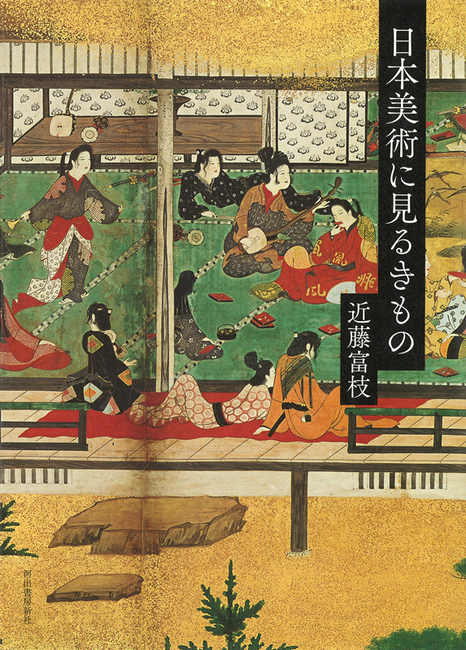 日本美術に見るきもの
近藤富枝
河出書房新社